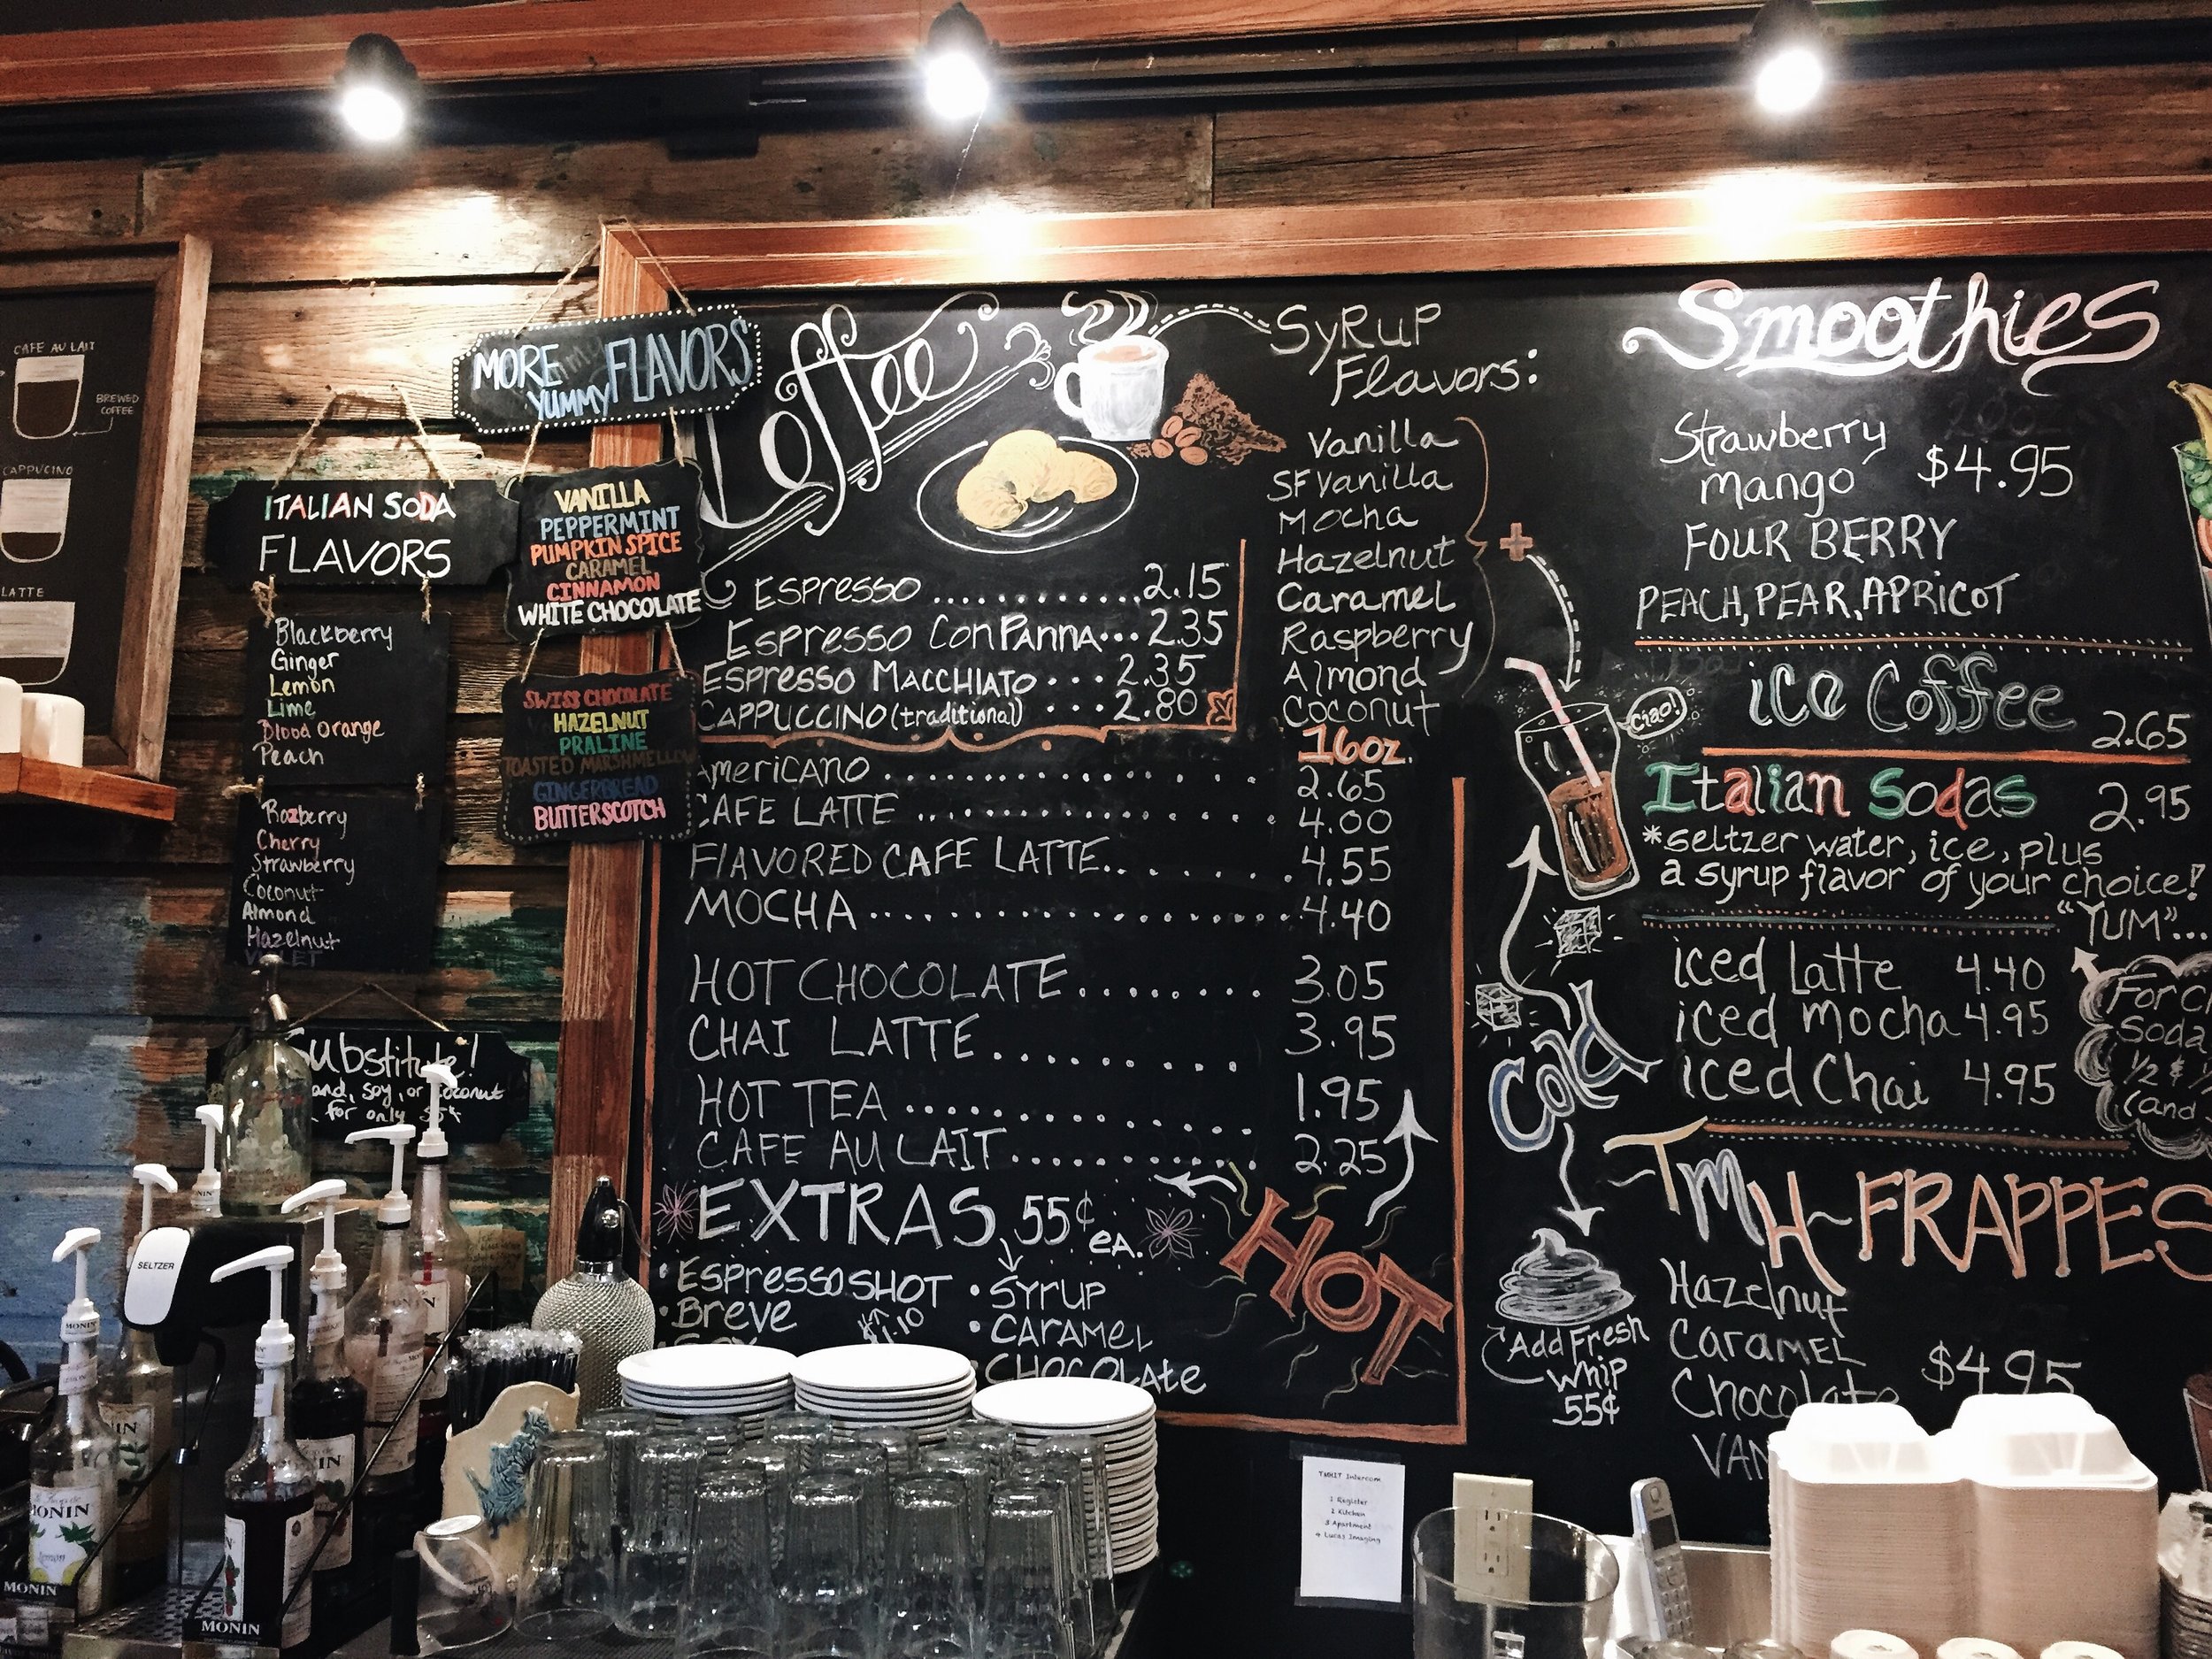 CAFE AU LAIT
BREWED
COFFEE
CAPPUCINO
LATTE
MORE
YUMMY FLAVORS
ITALIAN SODA
FLAVORS
Blackberry
Ginger
Lemon
Lime
Blood Orange
Peach
Razberry
Cherry
Strawberry
Coconut
Almond
Hazelnut
VIOLET
VANILLA
PEPPERMINT
PUMPKIN SPICE
CARAMEL
CINNAMON
WHITE CHOCOLATE
SWISS CHOCOLATE
HAZELNUT
PRALINE
TOASTED MARSHMELLOW
GINGERBREAD
BUTTERSCOTCH
Substitute!
soy, or Coconut
for only
Coffee
ESPRESSO ............ 2.15
ESPRESSO CON PANNA... 2.35
ESPRESSO MACCHIATO... 2.35
CAPPUCCINO (traditional) ... 2.80
SYRUP
Flavors:
Vanilla
SF Vanilla
Mocha
Hazelnut
Caramel
Raspberry
Almond
Coconut
+
16oz.
AMERICANO ............ 2.65
CAFE LATTE ............ 4.00
FLAVORED CAFE LATTE........ 4.55
MOCHA ............ 4.40
HOT CHOCOLATE ........ 3.05
CHAI LATTE ........ 3.95
HOT TEA ............ 1.95
CAFE AU LAIT ........ 2.25
EXTRAS 55¢ ea.
• Espresso SHOT
• Breve
• SYRUP
• CARAMEL
• CHOCOLATE
HOT
Smoothies
Strawberry
mango $4.95
FOUR BERRY
PEACH, PEAR, APRICOT
ice Coffee 2.65
Ciao!
Italian Sodas 2.95
*seltzer water, ice, plus
a syrup flavor of your choice!
"YUM"...
iced latte 4.40
iced mocha 4.95
iced Chai 4.95
For
Soda
1/2 &
(and
Cold
TMH-FRAPPES
Hazelnut
CARAMEL
Chocolate
$4.95
Add Fresh
Whip
55¢
SELTZER
MONIN
MONIN
MONIN
MONIN
lemon
TMHIT Intercom
1 Register
2 Kitchen
3 Apartment
4 Lucas Imaging